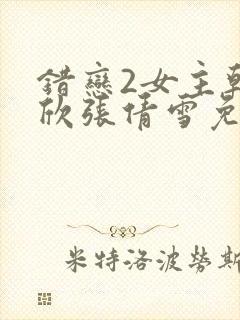 錯戀2女主
欣張倩雪免
米特洛波勞斯